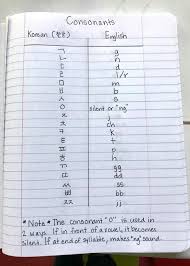 Consonants
Korean English
ㄱ g
ㄴ n
ㄷ d
ㄹ l/r
ㅁ m
ㅂ b
ㅅ s
ㅇ silent or "ng"
ㅈ j
ㅊ ch
ㅋ k
ㅌ t
ㅍ p
ㅎ h
ㄲ gg
ㄸ dd
ㅆ ss
ㅃ bb
ㅉ jj
*Note* The consonant "ㅇ" is used in
2 ways. If in front of a vowel, it becomes
silent. If at end of syllable, makes "ng" sound.